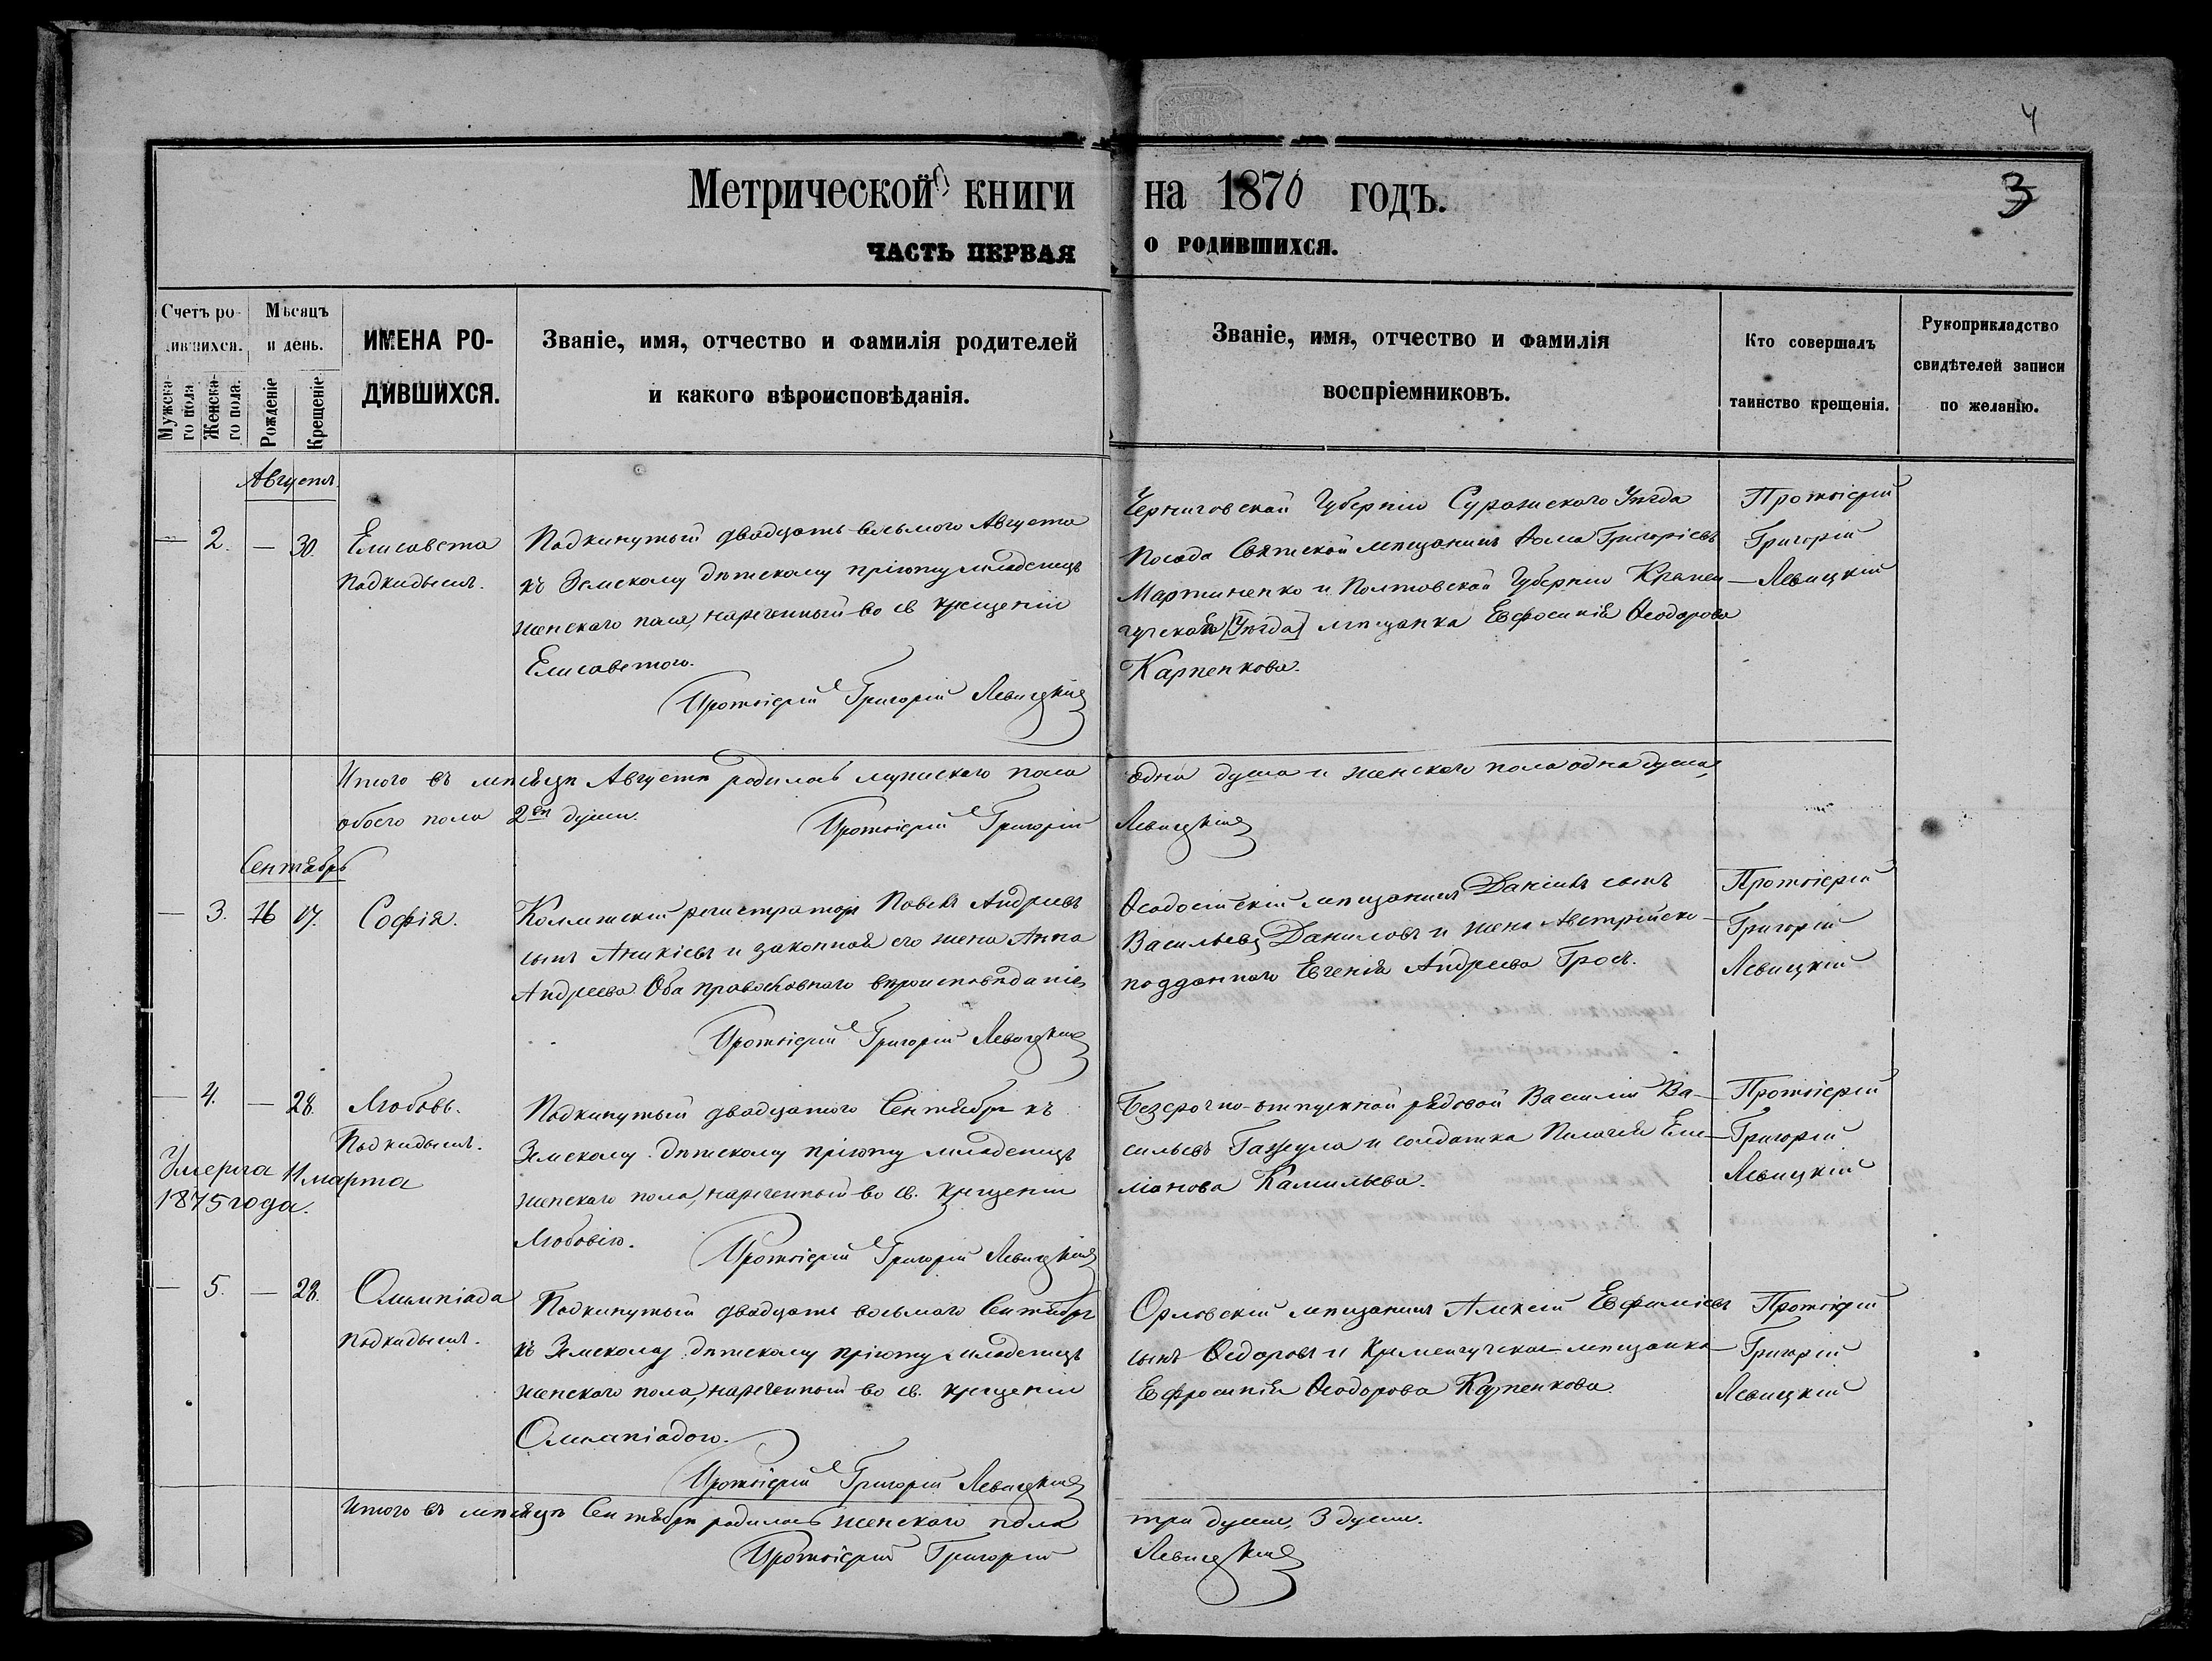 4
Метрической книги на 1870 годъ.
3
ЧАСТЬ ПЕРВАЯ О РОДИВШИХСЯ.
Счетъ родившихся.
Мужскаго пола
Женскаго пола.
Мѣсяцъ и день.
Рожденіе
Крещеніе
ИМЕНА РО-
ДИВШИХСЯ.
Званіе, имя, отчество и фамилія родителей
и какого вѣроисповѣданія.
Званіе, имя, отчество и фамилія
воспріемниковъ.
Кто совершалъ
таинство крещенія.
Рукоприкладство
свидѣтелей записи
по желанію.
Августъ.
— 2. — 30.
Елисавета
подкидышъ.
Подкинутый двадцать восьмого Августа
къ Земскому дѣтскому пріюту младенецъ
женскаго пола, нареченный во св крещеніи
Елисаветою.
Протоіерей Григорій Левицкій
Черниговской Губерніи Суражскаго Уѣзда
Посада Святской мѣщанинъ Ѳома Григоріевъ
Мартиненко и Полтовской Губерніи Кремен-
чугской [Уѣзда] мѣщанка Евфросинія Ѳеодорова
Карпенкова.
Протоіерей
Григорій
Левицкій
Итого въ мѣсяцѣ Августѣ родилось мужскаго пола одна душа и женскаго пола одна душа,
обоего пола 2вѣ души. Протоіерей Григорій Левицкій
Сентябрь
— 3. 16 17.
Софія.
Коллежскій регистраторъ Павелъ Андреевъ
сынъ Аникіевъ и законная его жена Анна
Андреева. Оба православнаго вѣроисповѣданія
Протоіерей Григорій Левицкій
Ѳеодосійскій мѣщанинъ Даніилъ сынъ
Васильевъ Даниловъ и жена Австрійско-
подданнаго Евгенія Андреева Гросъ.
Протоіерей
Григорій
Левицкій
— 4. — 28.
Любовь.
Подкидышъ.
Умерла 11 марта
1875 года.
Подкинутый двадцатого Сентября къ
Земскому дѣтскому пріюту младенецъ
женскаго пола, нареченный во св. крещеніи
Любовію.
Протоіерей Григорій Левицкій
Безсрочно-отпускной рядовой Василій Ва-
сильевъ и солдатка Пелагія Еме-
ліанова
Протоіерей
Григорій
Левицкій
— 5. — 28.
Олимпіада
подкидышъ.
Подкинутый двадцать восьмаго Сентября
къ Земскому дѣтскому пріюту младенецъ
женскаго пола, нареченный во св. крещеніи
Олимпіадою.
Протоіерей Григорій Левицкій
Орловскій мѣщанинъ Алексій Евфиміевъ
сынъ Ѳедоровъ и Кременчугская мѣщанка
Евфросинія Ѳеодорова Карпенкова.
Протоіерей
Григорій
Левицкій
Итого въ мѣсяцѣ Сентябрѣ родилось женскаго пола три души, 3 души.
Протоіерей Григорій Левицкій